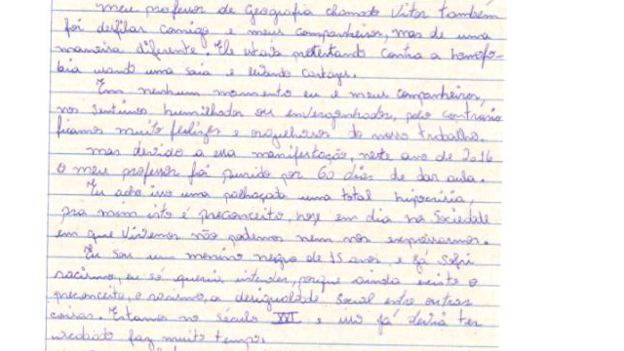 meu professor de Geografia chamado Vitor também
foi desfilar comigo e meus companheiros, mas de uma
maneira diferente. Ele estava protestando contra a homofo-
bia usando uma saia e levando cartazes.
Em nenhum momento eu e meus companheiros,
nos sentimos humilhados ou envergonhados, pelo contrario
ficamos muito felizes e orgulhosos do nosso trabalho.
mas devido a essa manifestação, neste ano de 2016
o meu professor foi punido por 60 dias de dar aula.
Eu acho isso uma palhaçada uma total hipocrisia,
pra mim isto é preconceito, hoje em dia na Sociedade
em que vivemos não podemos nem nos expressarmos.
Eu sou um menino negro de 15 anos, e já sofri
racismo, eu só queria intender, porque ainda existe o
preconceito, o racismo, a desigualdade Social entre outras
coisas. Estamos no século XXI e isso já devia ter
acabado faz muito tempo.